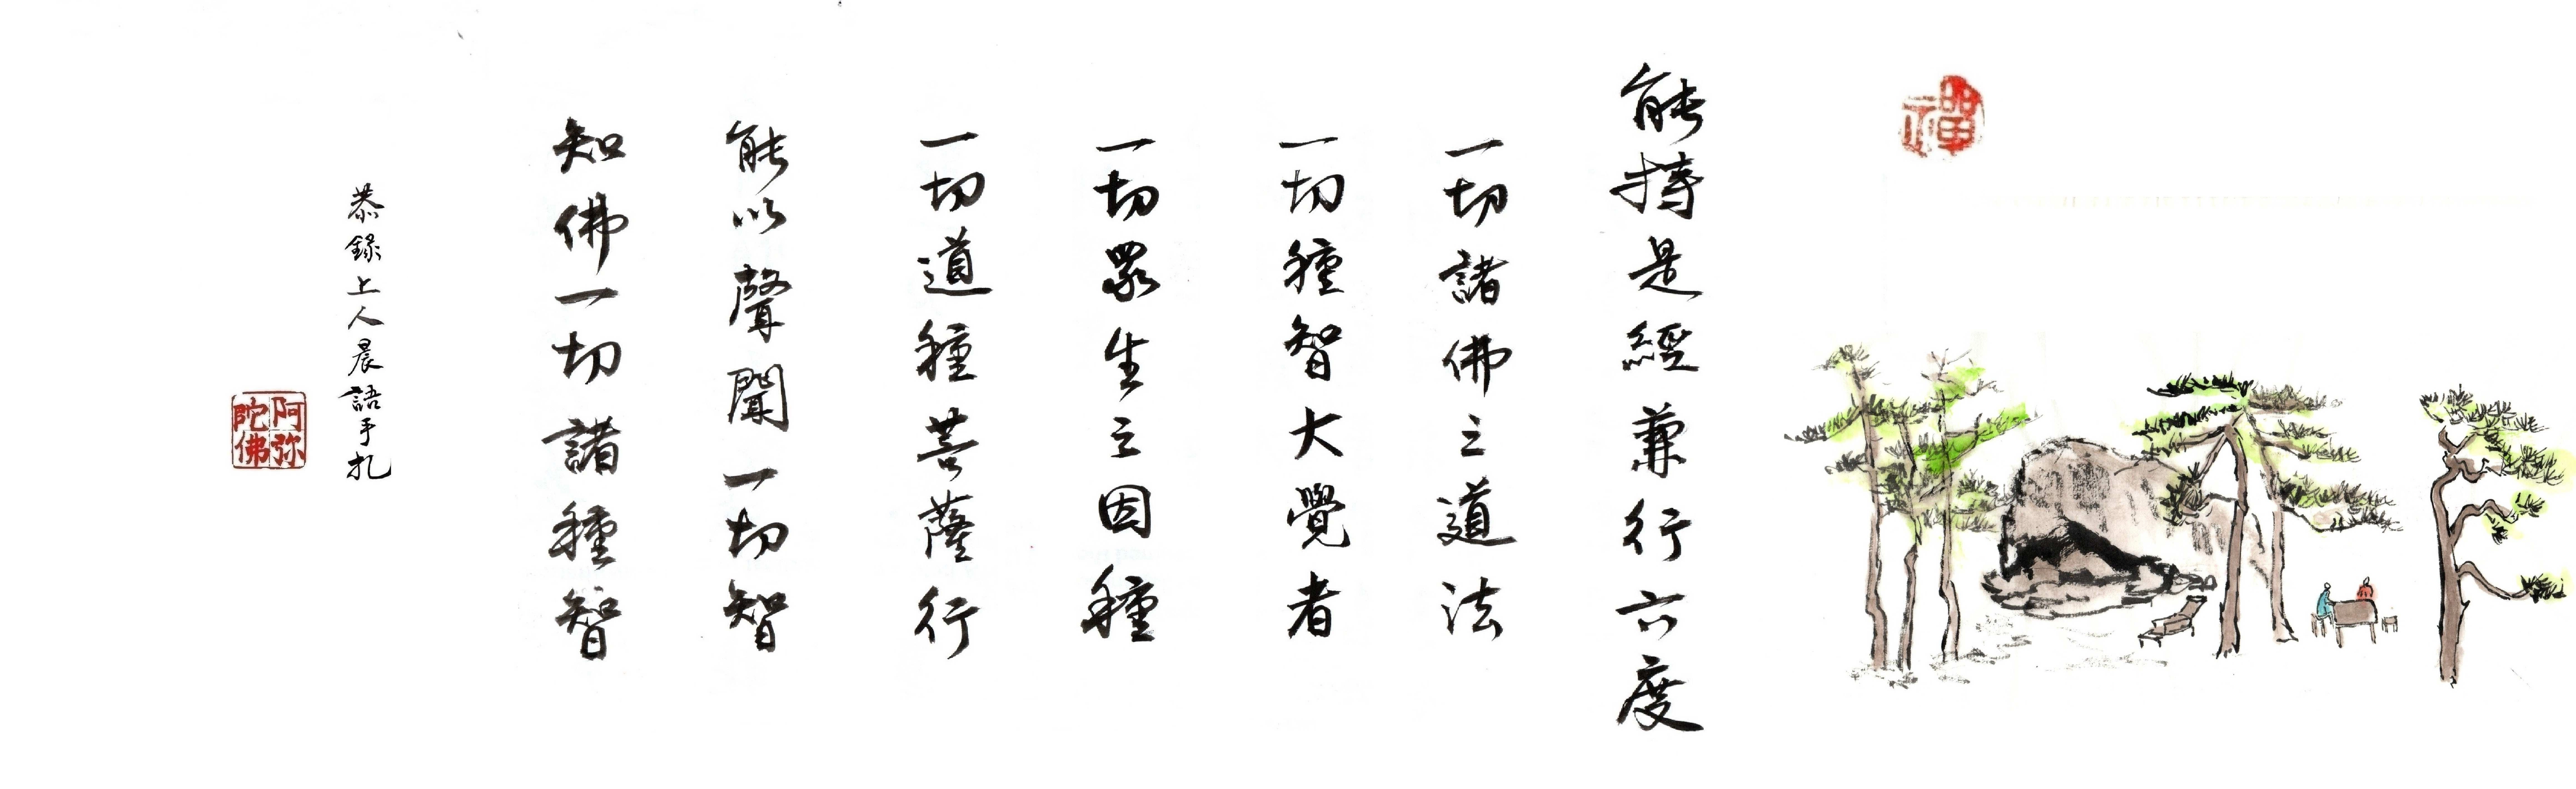 禪
能持是經兼行六度
一切諸佛之道法
一切種智大覺者
一切眾生之因種
一切道種菩薩行
能以聲聞一切智
知佛一切諸種智
恭錄上人晨語手札
阿弥陀佛